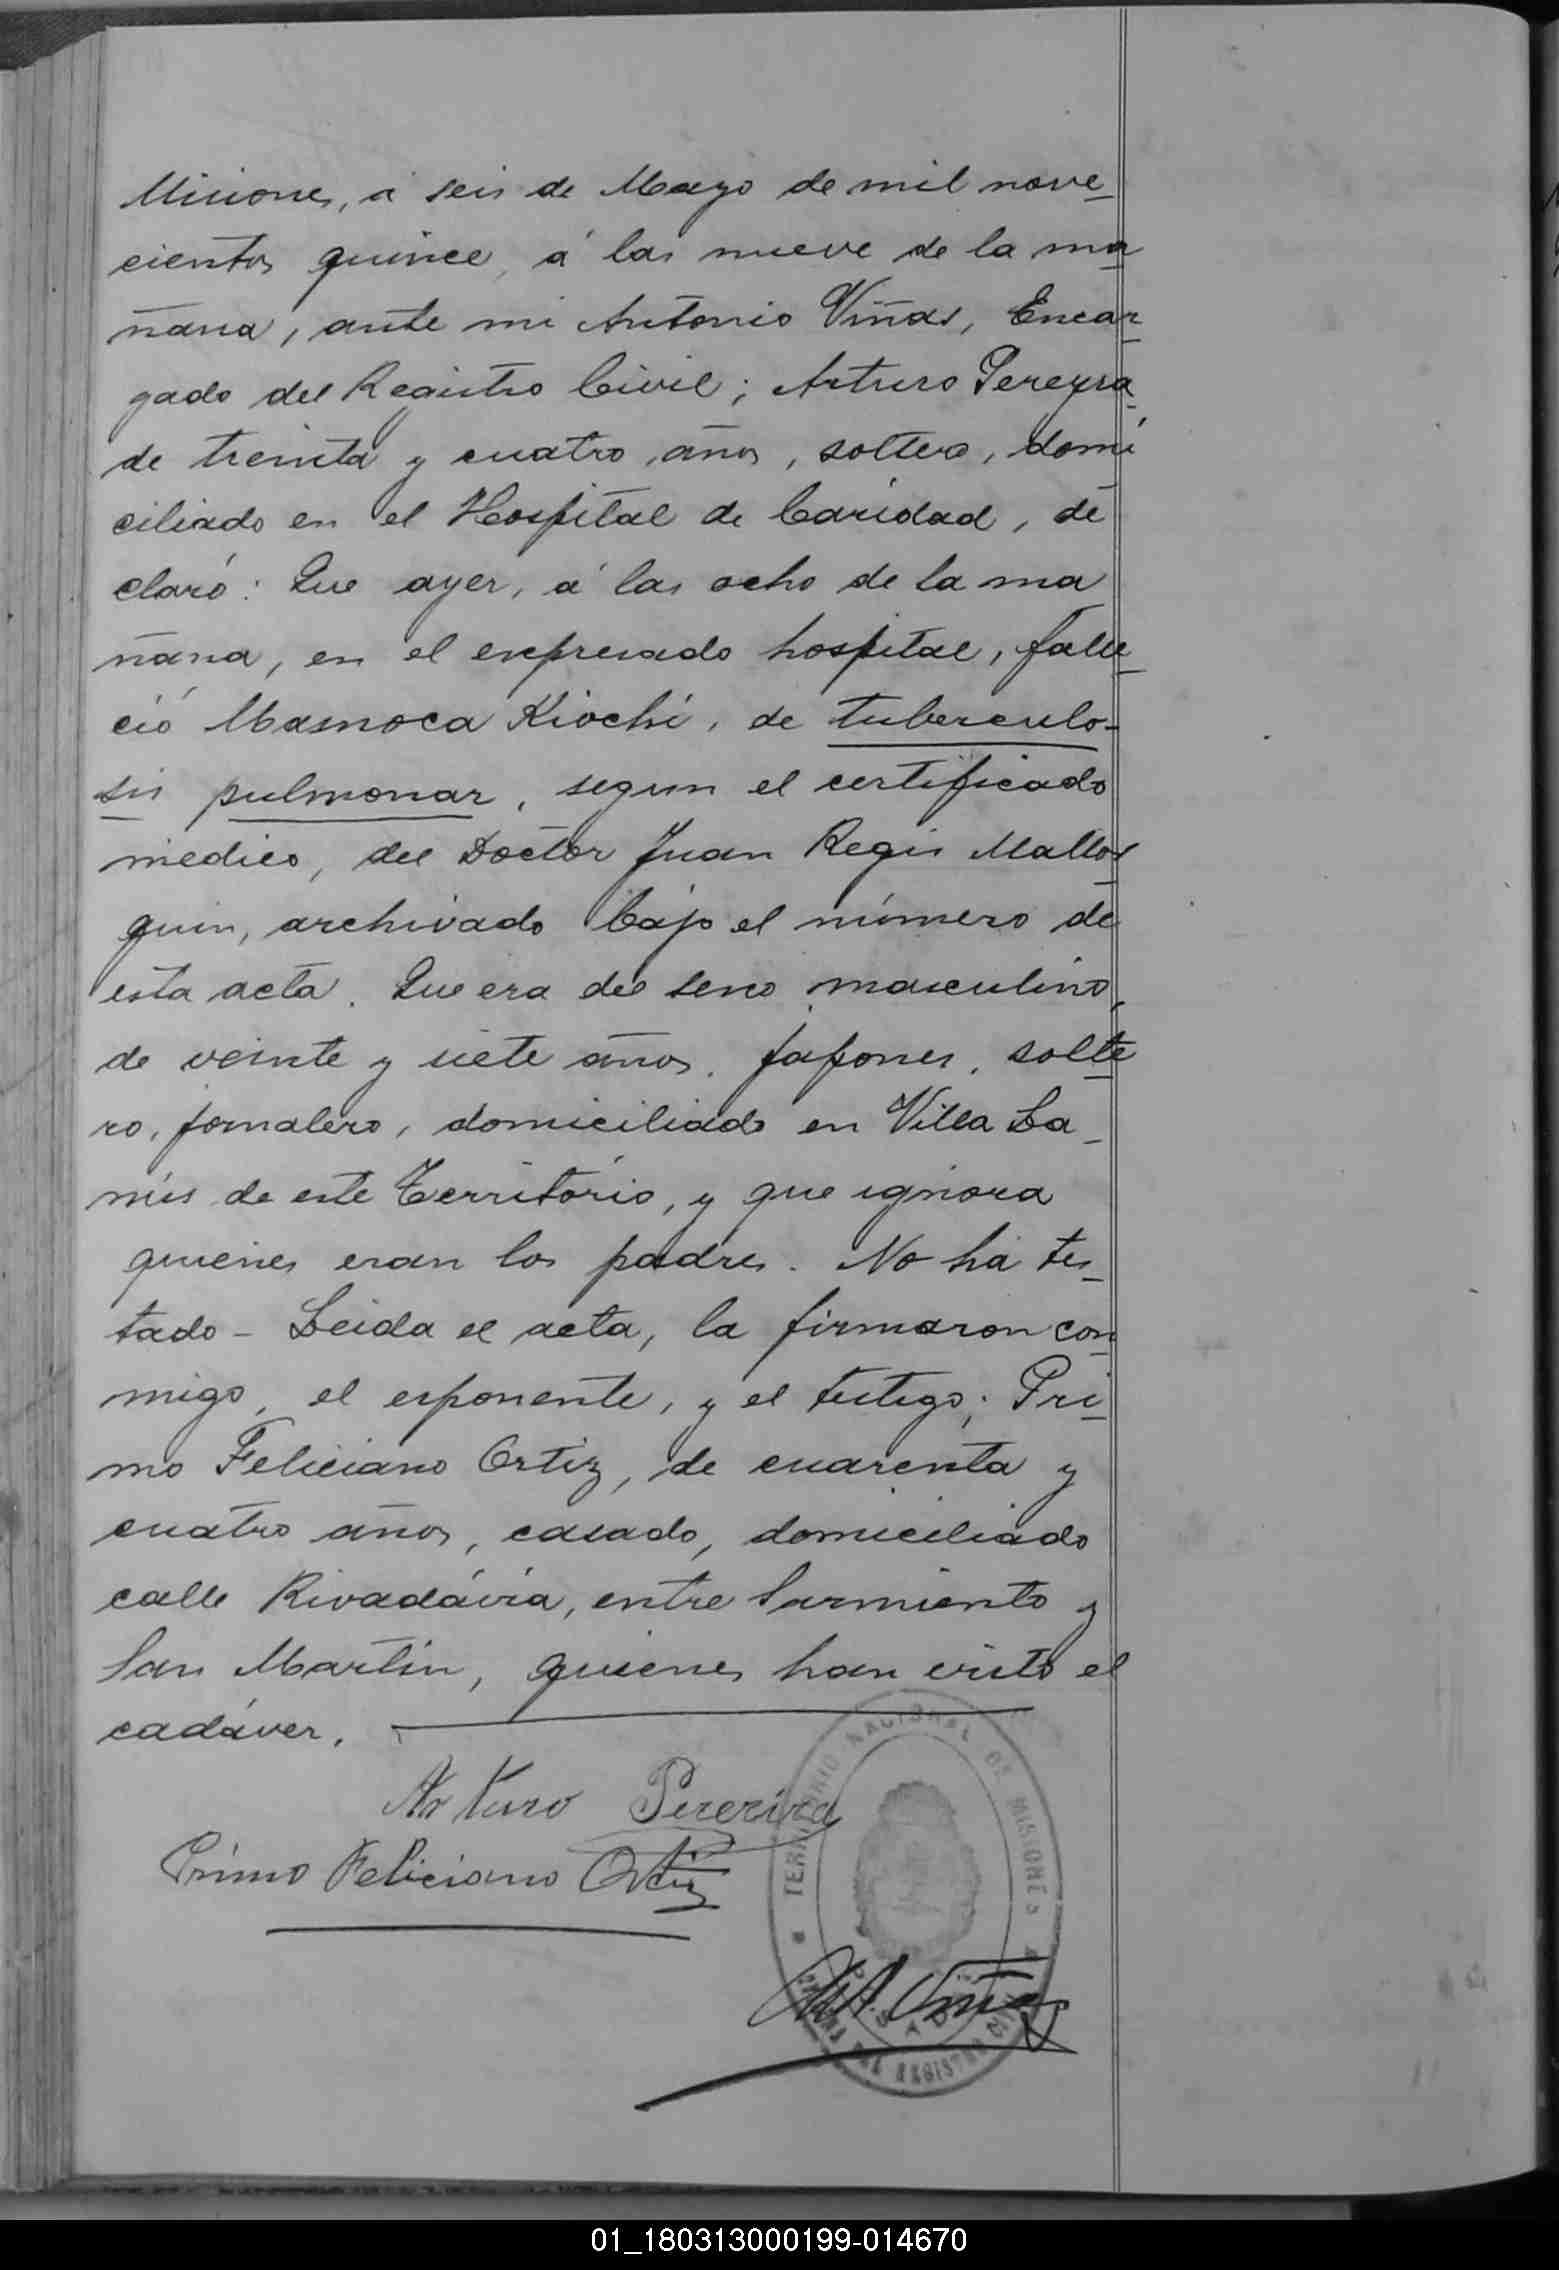 Misiones, á seis de Mayo de mil nove-
cientos quince, á las nueve de la ma-
ñana, ante mi Antonio Viñas, Encar-
gado del Registro Civil; Arturo Pereyra
de treinta y cuatro años, soltero, domi
ciliado en el Hospital de Caridad, de
claró: Que ayer, á las ocho de la ma
ñana, en el expresado hospital, falle-
ció Masnoca Kiochi, de tuberculo-
sis pulmonar, segun el certificado
medico, del Doctor Juan Regis Mallor-
quin, archivado bajo el número de
esta acta. Que era del sexo masculino,
de veinte y siete años. japones, solte-
ro, jornalero, domiciliado en Villa La-
nús de este Territorio, y que ignora
quienes eran los padres. No ha tes-
tado - Leida el acta, la firmaron con-
migo, el exponente, y el testigo; Pri-
mo Feliciano Ortiz, de cuarenta y
cuatro años, casado, domiciliado
calle Rivadávia, entre Sarmiento y
San Martin, quienes han visto el
cadáver.
Arturo Pererira
Primo Feliciano Ortiz
TERRITORIO NACIONAL DE MISIONES
POSADAS
DEL REGISTRO CIVIL
A. Viñas
01_180313000199-014670